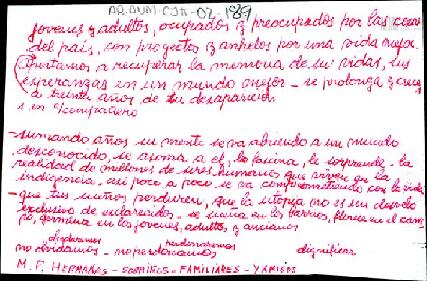 AR.DUM-CDH-02-189
jovenes y adultos, ocupados y preocupados por las cosas
del país, con proyectos y anhelos por una vida mejor.
Aportamos a recuperar la memoria de sus vidas, sus
esperanzas en un mundo mejor - se prolonga y crece
a treinta años de tu desaparición
s en s/compañero
- sumando años su mente se va abriendo a un mundo
desconocido, se asoma a el, lo fascina, le sorprende. la
realidad de millones de seres humanos que viven en la
indigencia, así poco a poco se va comprometiendo con la vida
- que tus sueños perduren, que la utopía no es un desvelo
exclusivo de esclarecidos - se nueva en los barrios, florece en el cam
po, germina en los jovenes, adultos, y ancianos
olvidaremos perdonaremos
no olvidamos - no perdonamos dignificar
M. F. HERMANOS - SOBRINOS - FAMILIARES - Y AMIGOS